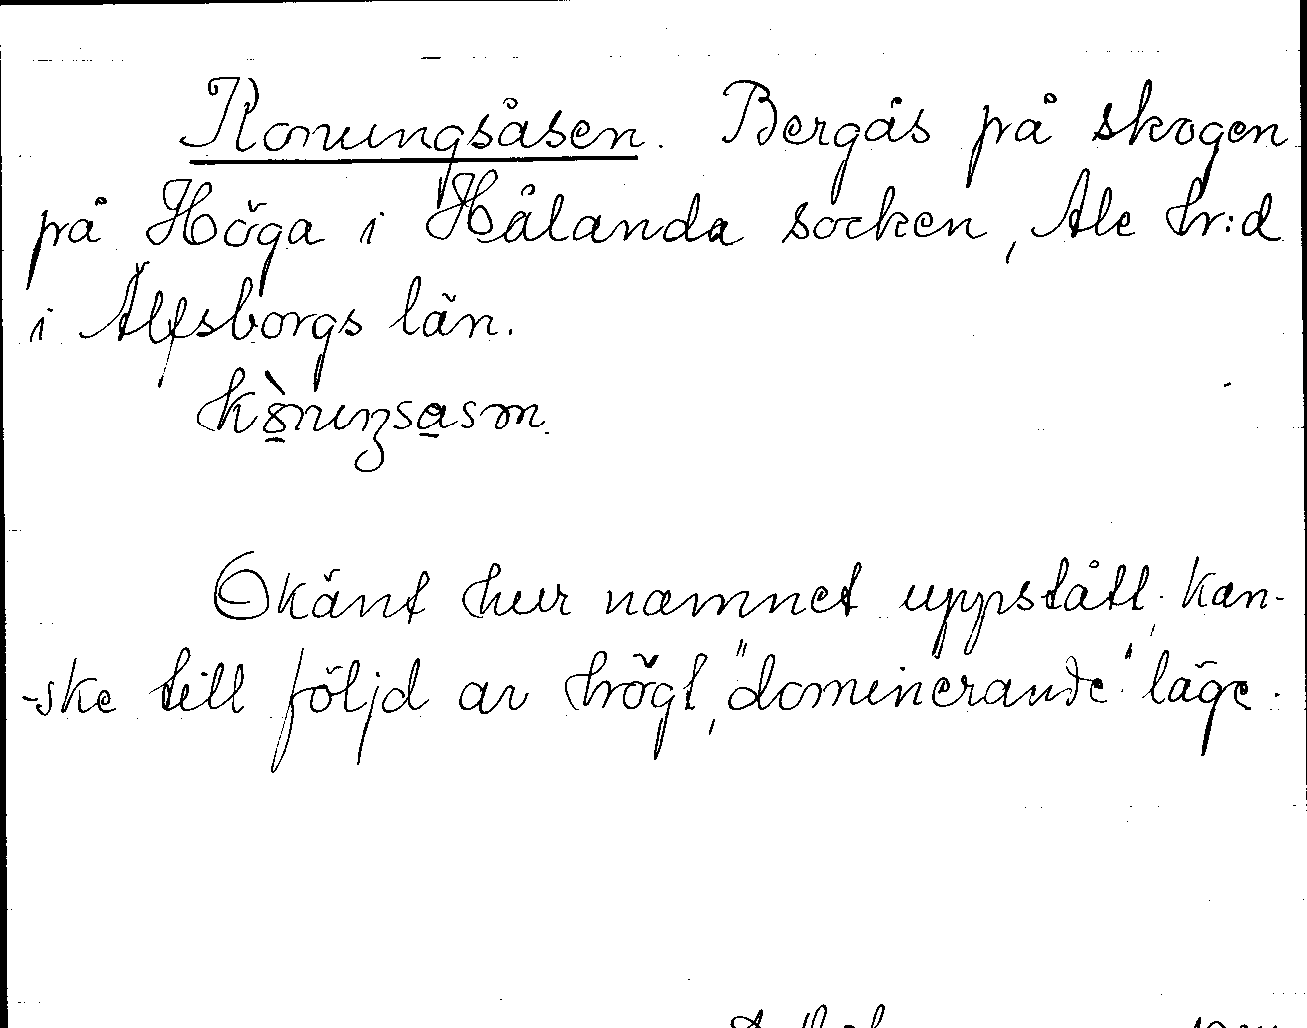 Konungsåsen. Bergås på skogen
på Höga i Hålanda socken, Ale hr:d
i Älfsborgs län.
Okänt hur namnet uppstått, kan-
-ske till följd av högt, "dominerande" läge.